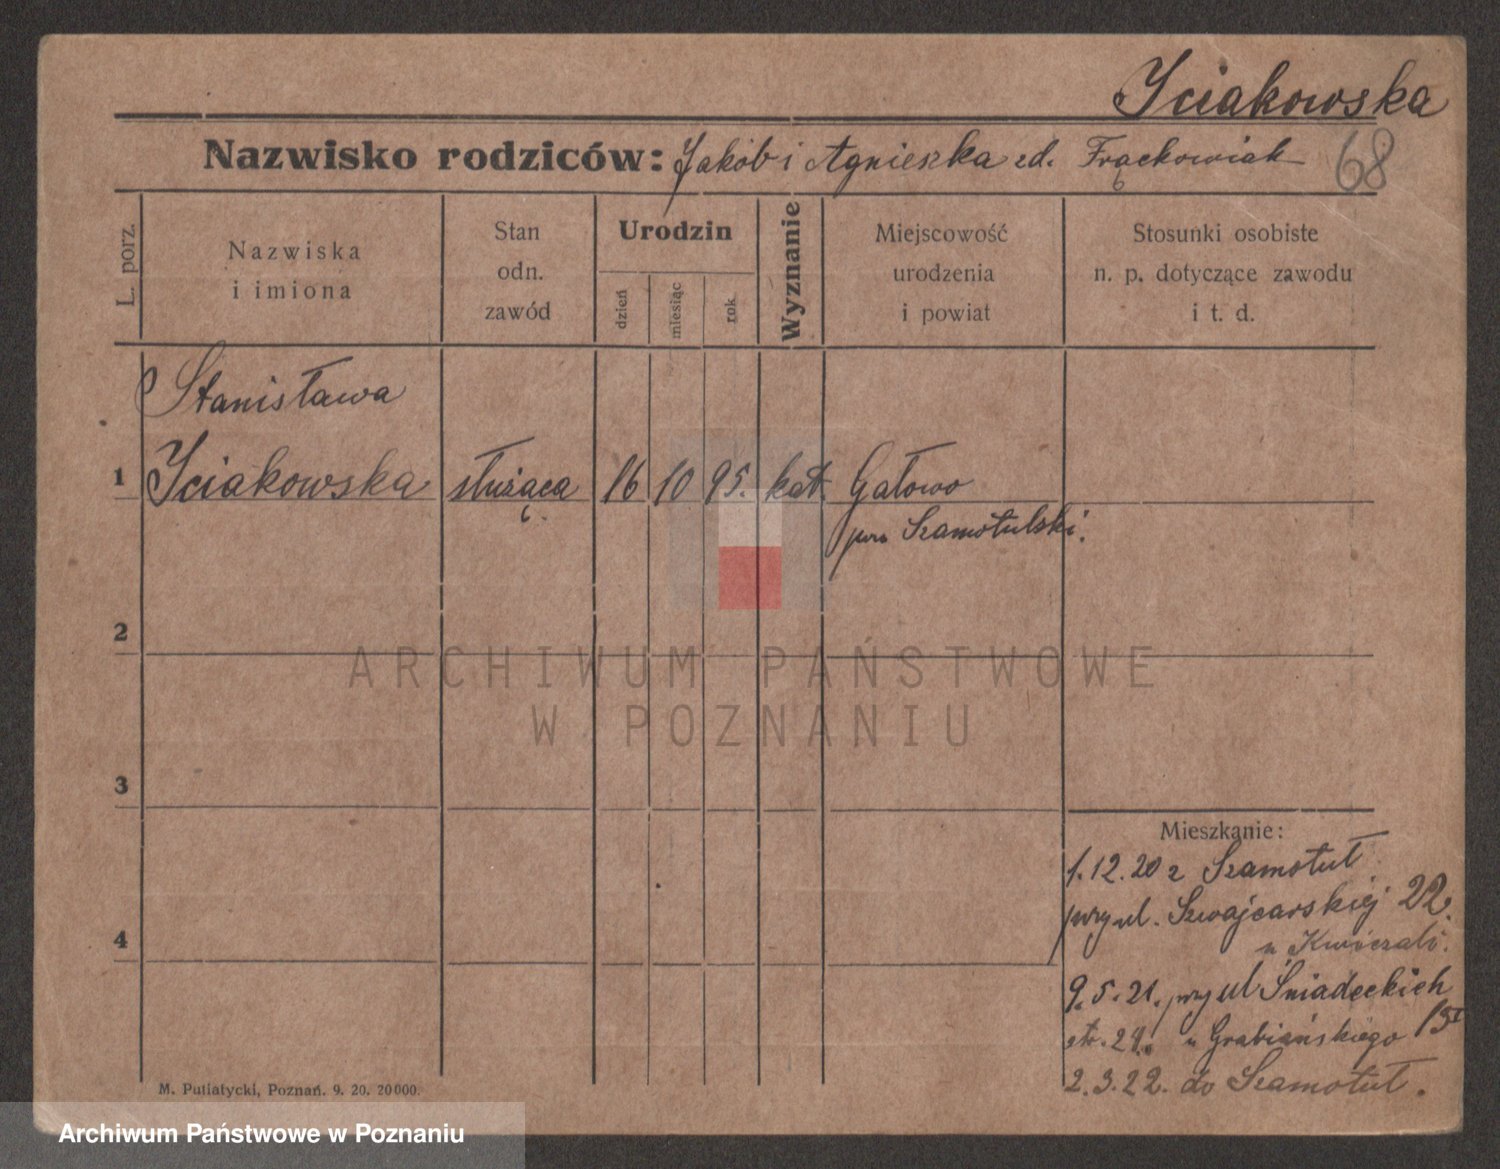 Iciakowska
Nazwisko rodziców: Jakób i Agnieszka zd. Frąckowiak 68
L. porz.
Nazwiska
i imiona
Stan
odn.
zawód
Urodzin
dzień
miesiąc
rok
Wyznanie
Miejscowość
urodzenia
i powiat
Stosunki osobiste
n. p. dotyczące zawodu
i t. d.
Stanisława
1 Iciakowska służąca 16 10 95. kat. Gałowo
pow Szamotulski.
2
ARCHIWUM PAŃSTWOWE
W POZNANIU
3
Mieszkanie:
1.12.20 z Szamotuł
przy ul. Szwajcarskiej 22.
4
9.5.21. przy ul Śniadeckich
u Grabiańskiego
2.3.22. do Szamotuł.
M. Putiatycki, Poznań. 9. 20. 20000.
Archiwum Państwowe w Poznaniu